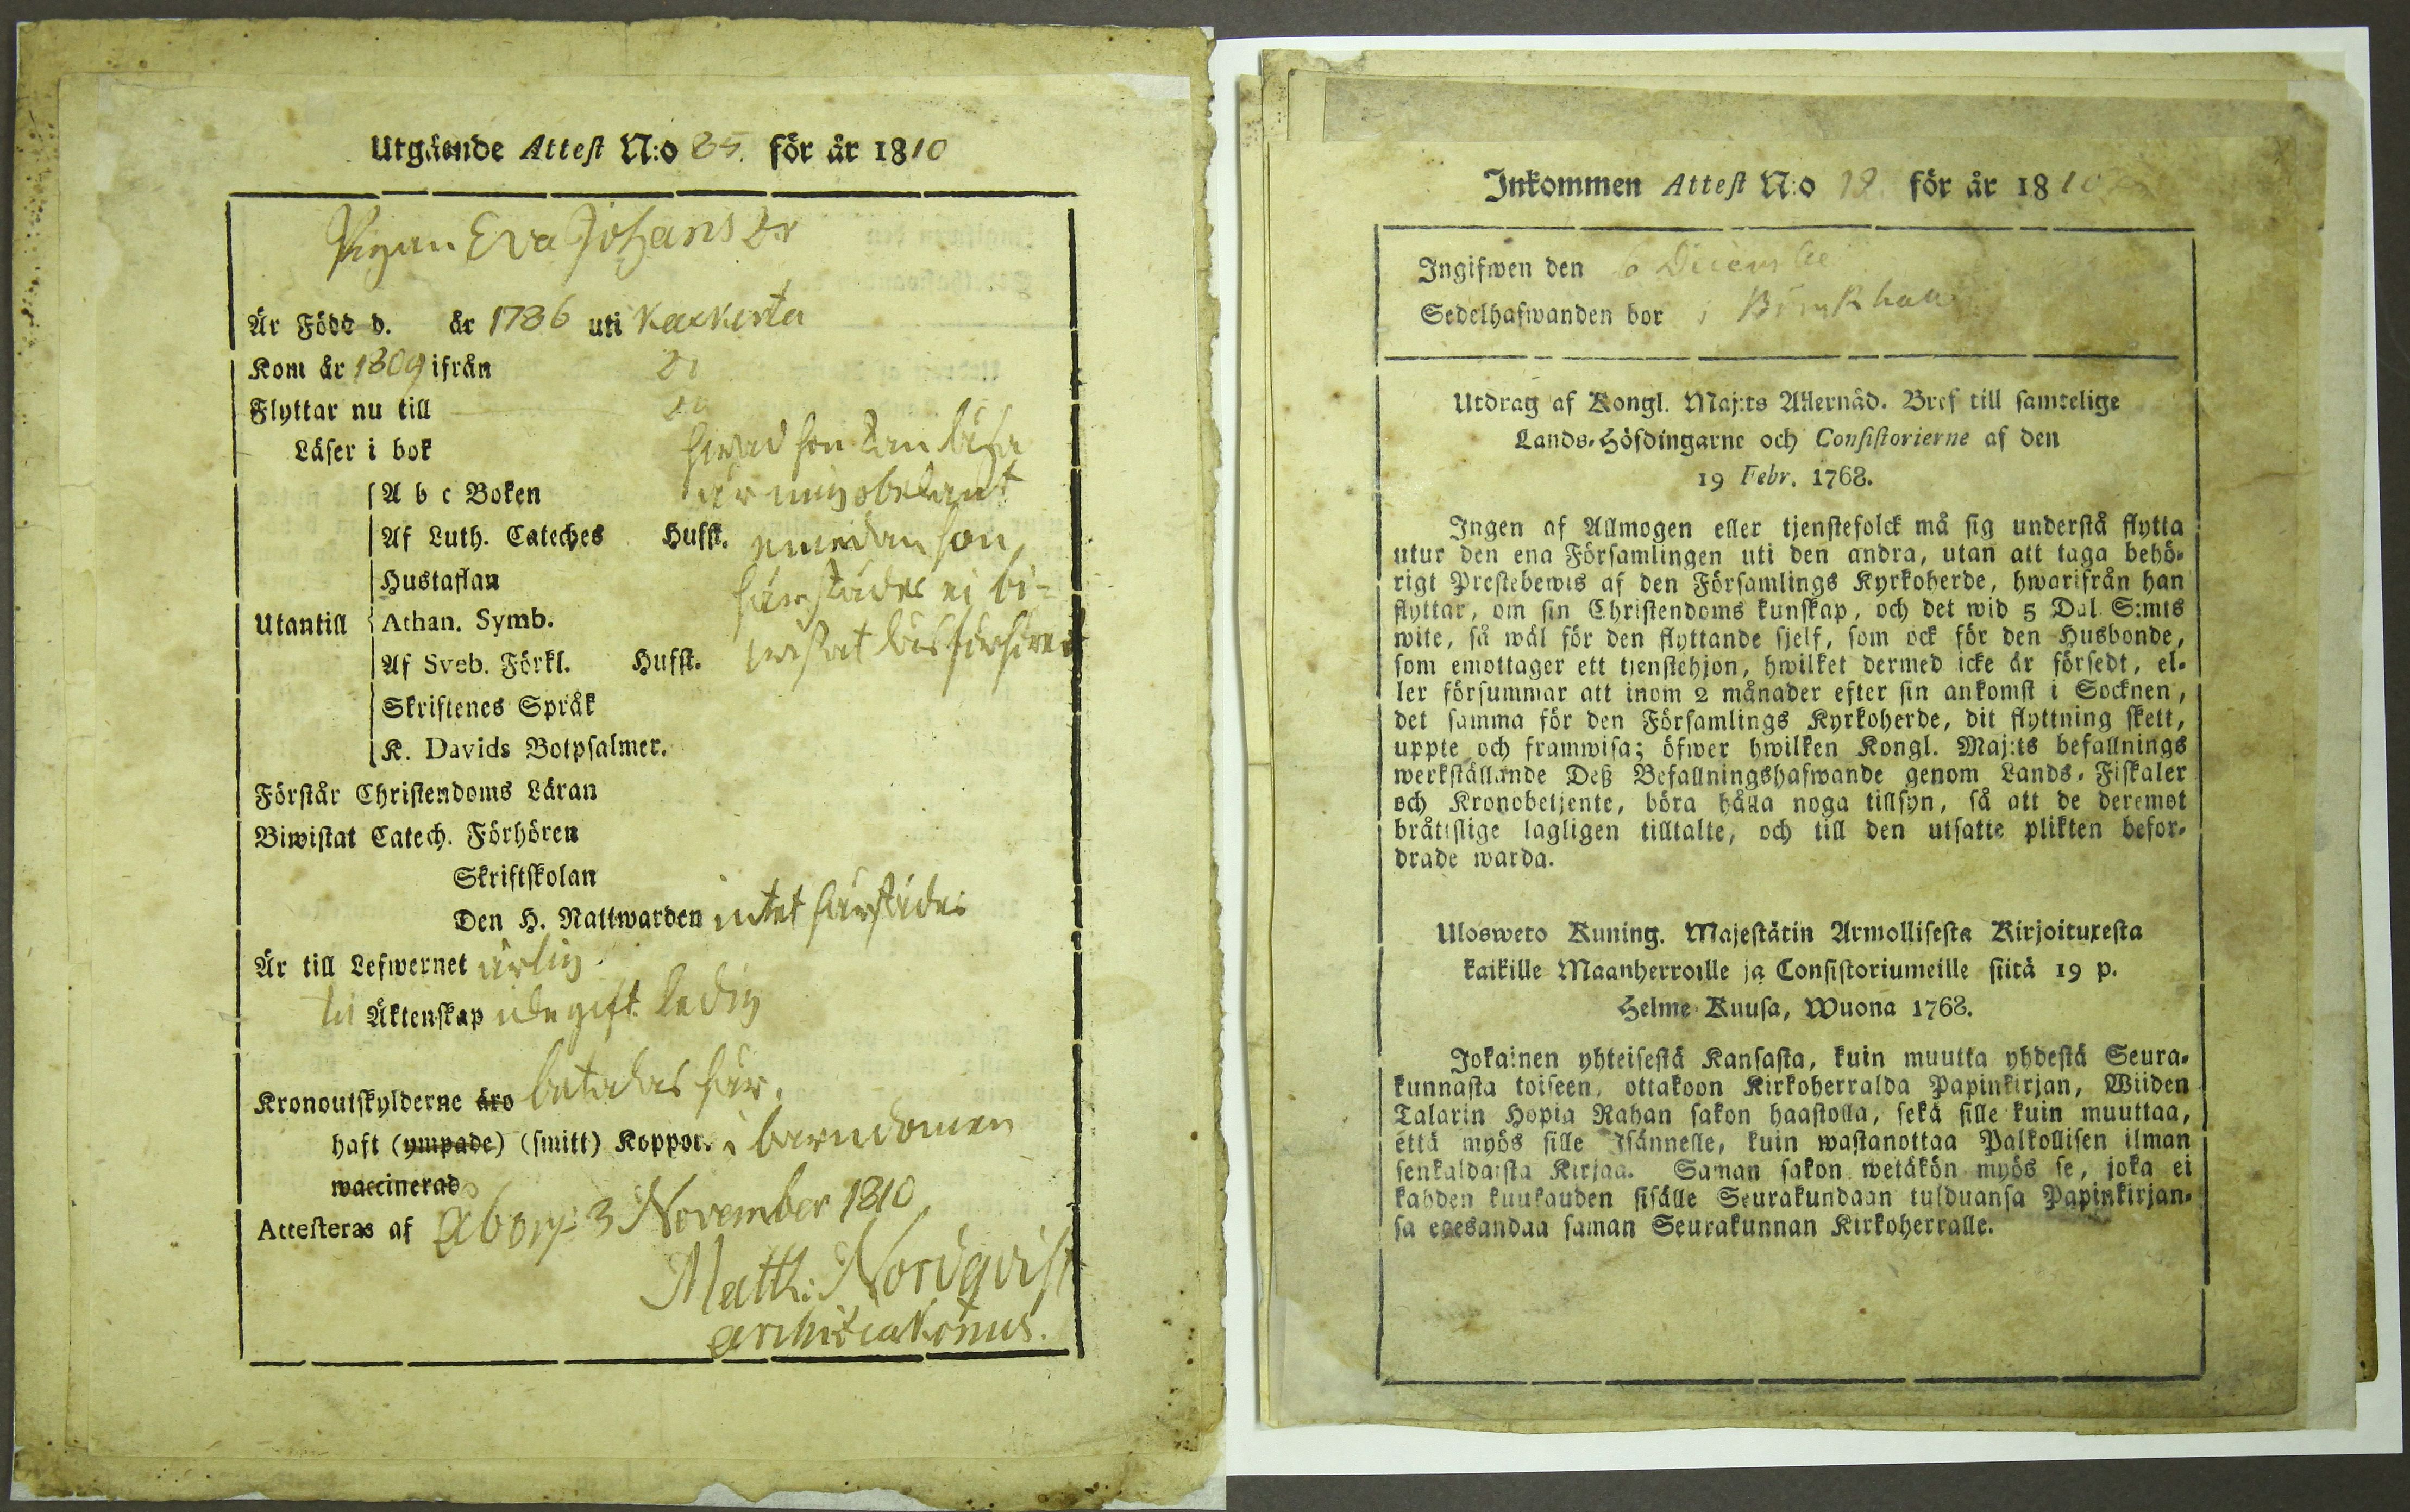 Utgående Attest N:o 85. för år 1810
Pigan Eva Johans Dr
Är Född d. år 1786 uti Kackerta
Kom år 1809 ifrån Do
Flyttar nu till Do
Läser i bok hvad hon kan läsa
A b c Boken är mig obekant
Af Luth. Cateches Hufst. emedan hon
Hustaflan härstädes ei bi-
Utantill Athan. Symb.
Af Sveb. Förkl. Hufst. wistat läsförhören
Skriftenes Språk
K. Davids Botpsalmer.
Förstår Christendoms Läran
Biwistat Catech. Förhören
Skriftskolan
Den H. Nattwarden intet härstädes
Är till Lefwernet ärlig.
til Äktenskap icke gift ledig
Kronoutskylderne äro betalas här.
haft (ympade) (smitt) Koppor. i barndomen
waccinerad
Attesteras af Åbo 3 November 1810
Matth: Nordqvist
archidiakonus.
Inkommen Attest N:o 19. för år 1810
Ingifwen den 6 December
Sedelhafwanden bor i
Utdrag af Kongl. Maj:ts Allernåd. Bref till samtelige
Lands-Höfdingarne och Consistorierne af den
19 Febr. 1768.
Ingen af Allmogen eller tjenstefolck må sig understå flytta
utur den ena Församlingen uti den andra, utan att taga behö-
rigt Prestebewis af den Församlings Kyrkoherde, hwarifrån han
flyttar, om sin Christendoms kunskap, och det wid 5 Dal. S:mts
wite, så wäl för den flyttande sjelf, som ock för den Husbonde,
som emottager ett tjenstehjon, hwilket dermed icke är försedt, el-
ler försummar att inom 2 månader efter sin ankomst i Socknen,
det samma för den Församlings Kyrkoherde, dit flyttning skett,
uppte och framwisa; öfwer hwilken Kongl. Maj:ts befallnings
werkställande Deß Befallningshafwande genom Lands-Fiskaler
och Kronobetjente, böra hålla noga tillsyn, så att de deremot
bråttslige lagligen tilltalte, och till den utsatte plikten befor-
drade warda.
Ulosweto Kuning. Majestätin Armollisesta Kirjoituxesta
kaikille Maanherroille ja Consistoriumeille siitä 19 p.
Helme Kuusa, Wuona 1768.
Jokainen yhteisestä Kansasta, kuin muutta yhdestä Seura-
kunnasta toiseen, ottakoon Kirkoherralda Papinkirjan, Wiiden
Talarin Hopia Rahan sakon haastolla, sekä sille kuin muuttaa,
että myös sille Isännelle, kuin wastanottaa Palkollisen ilman
senkaldaista Kirjaa. Saman sakon wetäkön myös se, joka ei
kahden kuukauden sisälle Seurakundaan tulduansa Papinkirjan-
sa edesandaa saman Seurakunnan Kirkoherralle.